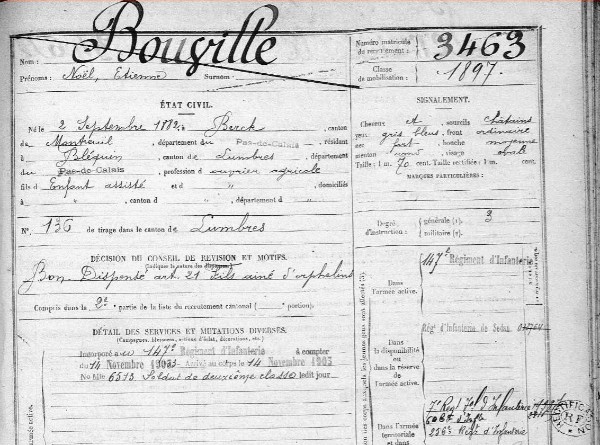 Nom : Bouville
Prénoms : Noël, Etienne Surnom :
Numéro matricule du recrutement : 3463
Classe de mobilisation : 1897.
ÉTAT CIVIL.
Né le 2 Septembre 1882, à Berck, canton
de Montreuil, département du Pas-de-Calais, résidant
à Bléquin, canton de Lumbres, département
du Pas-de-Calais, profession d'ouvrier agricole
fils d'Enfant assisté et d " , domiciliés
à " , canton d " , département d "
N° 136 de tirage dans le canton de Lumbres
SIGNALEMENT.
Cheveux et sourcils châtains
yeux gris bleus, front ordinaire
nez fort, bouche moyenne
menton rond, visage ovale
Taille : 1 m. 70 cent. Taille rectifiée : 1 m. cent.
MARQUES PARTICULIÈRES :
Degré d'instruction : générale (1). 3
militaire (2).
DÉCISION DU CONSEIL DE REVISION ET MOTIFS.
(Indiquer la nature des dispenses)
Bon Dispensé art. 21 Fils aîné d'orphelins
Compris dans la 2e partie de la liste du recrutement cantonal ( portion).
DÉTAIL DES SERVICES ET MUTATIONS DIVERSES.
(Campagnes, blessures, actions d'éclat, décorations, etc.)
Incorporé au 147e Régiment d'Infanterie à compter
du 14 Novembre 1903 Arrivé au corps le 14 Novembre 1903
No Mle 6513 Soldat de deuxième classe ledit jour
Dans l'armée active.
147e Régiment d'Infanterie
Dans la disponibilité ou dans la réserve de l'armée active.
Régt d'Infanterie de Sedan
Dans l'armée territoriale et dans
d'Infanterie
236e Régt d'Infanterie